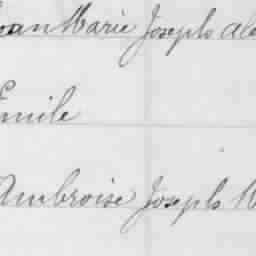 Jean Marie Joseph Ale
Emile
Ambroise Joseph